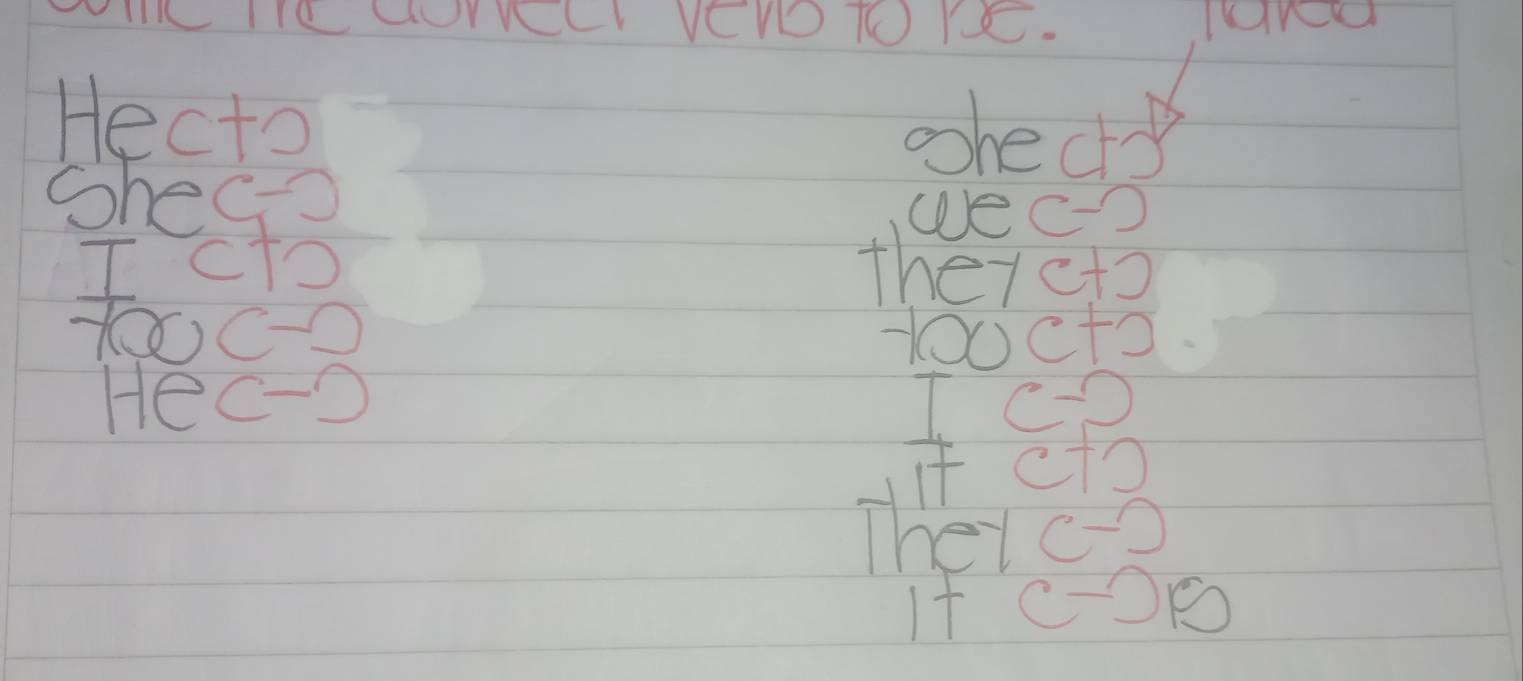 Write the correct verb to be.
He (+)
She (-)
I (+)
You (-)
He (-)
She (+)
We (-)
They (+)
You (+)
I (-)
It (+)
They (-)
It (-) is